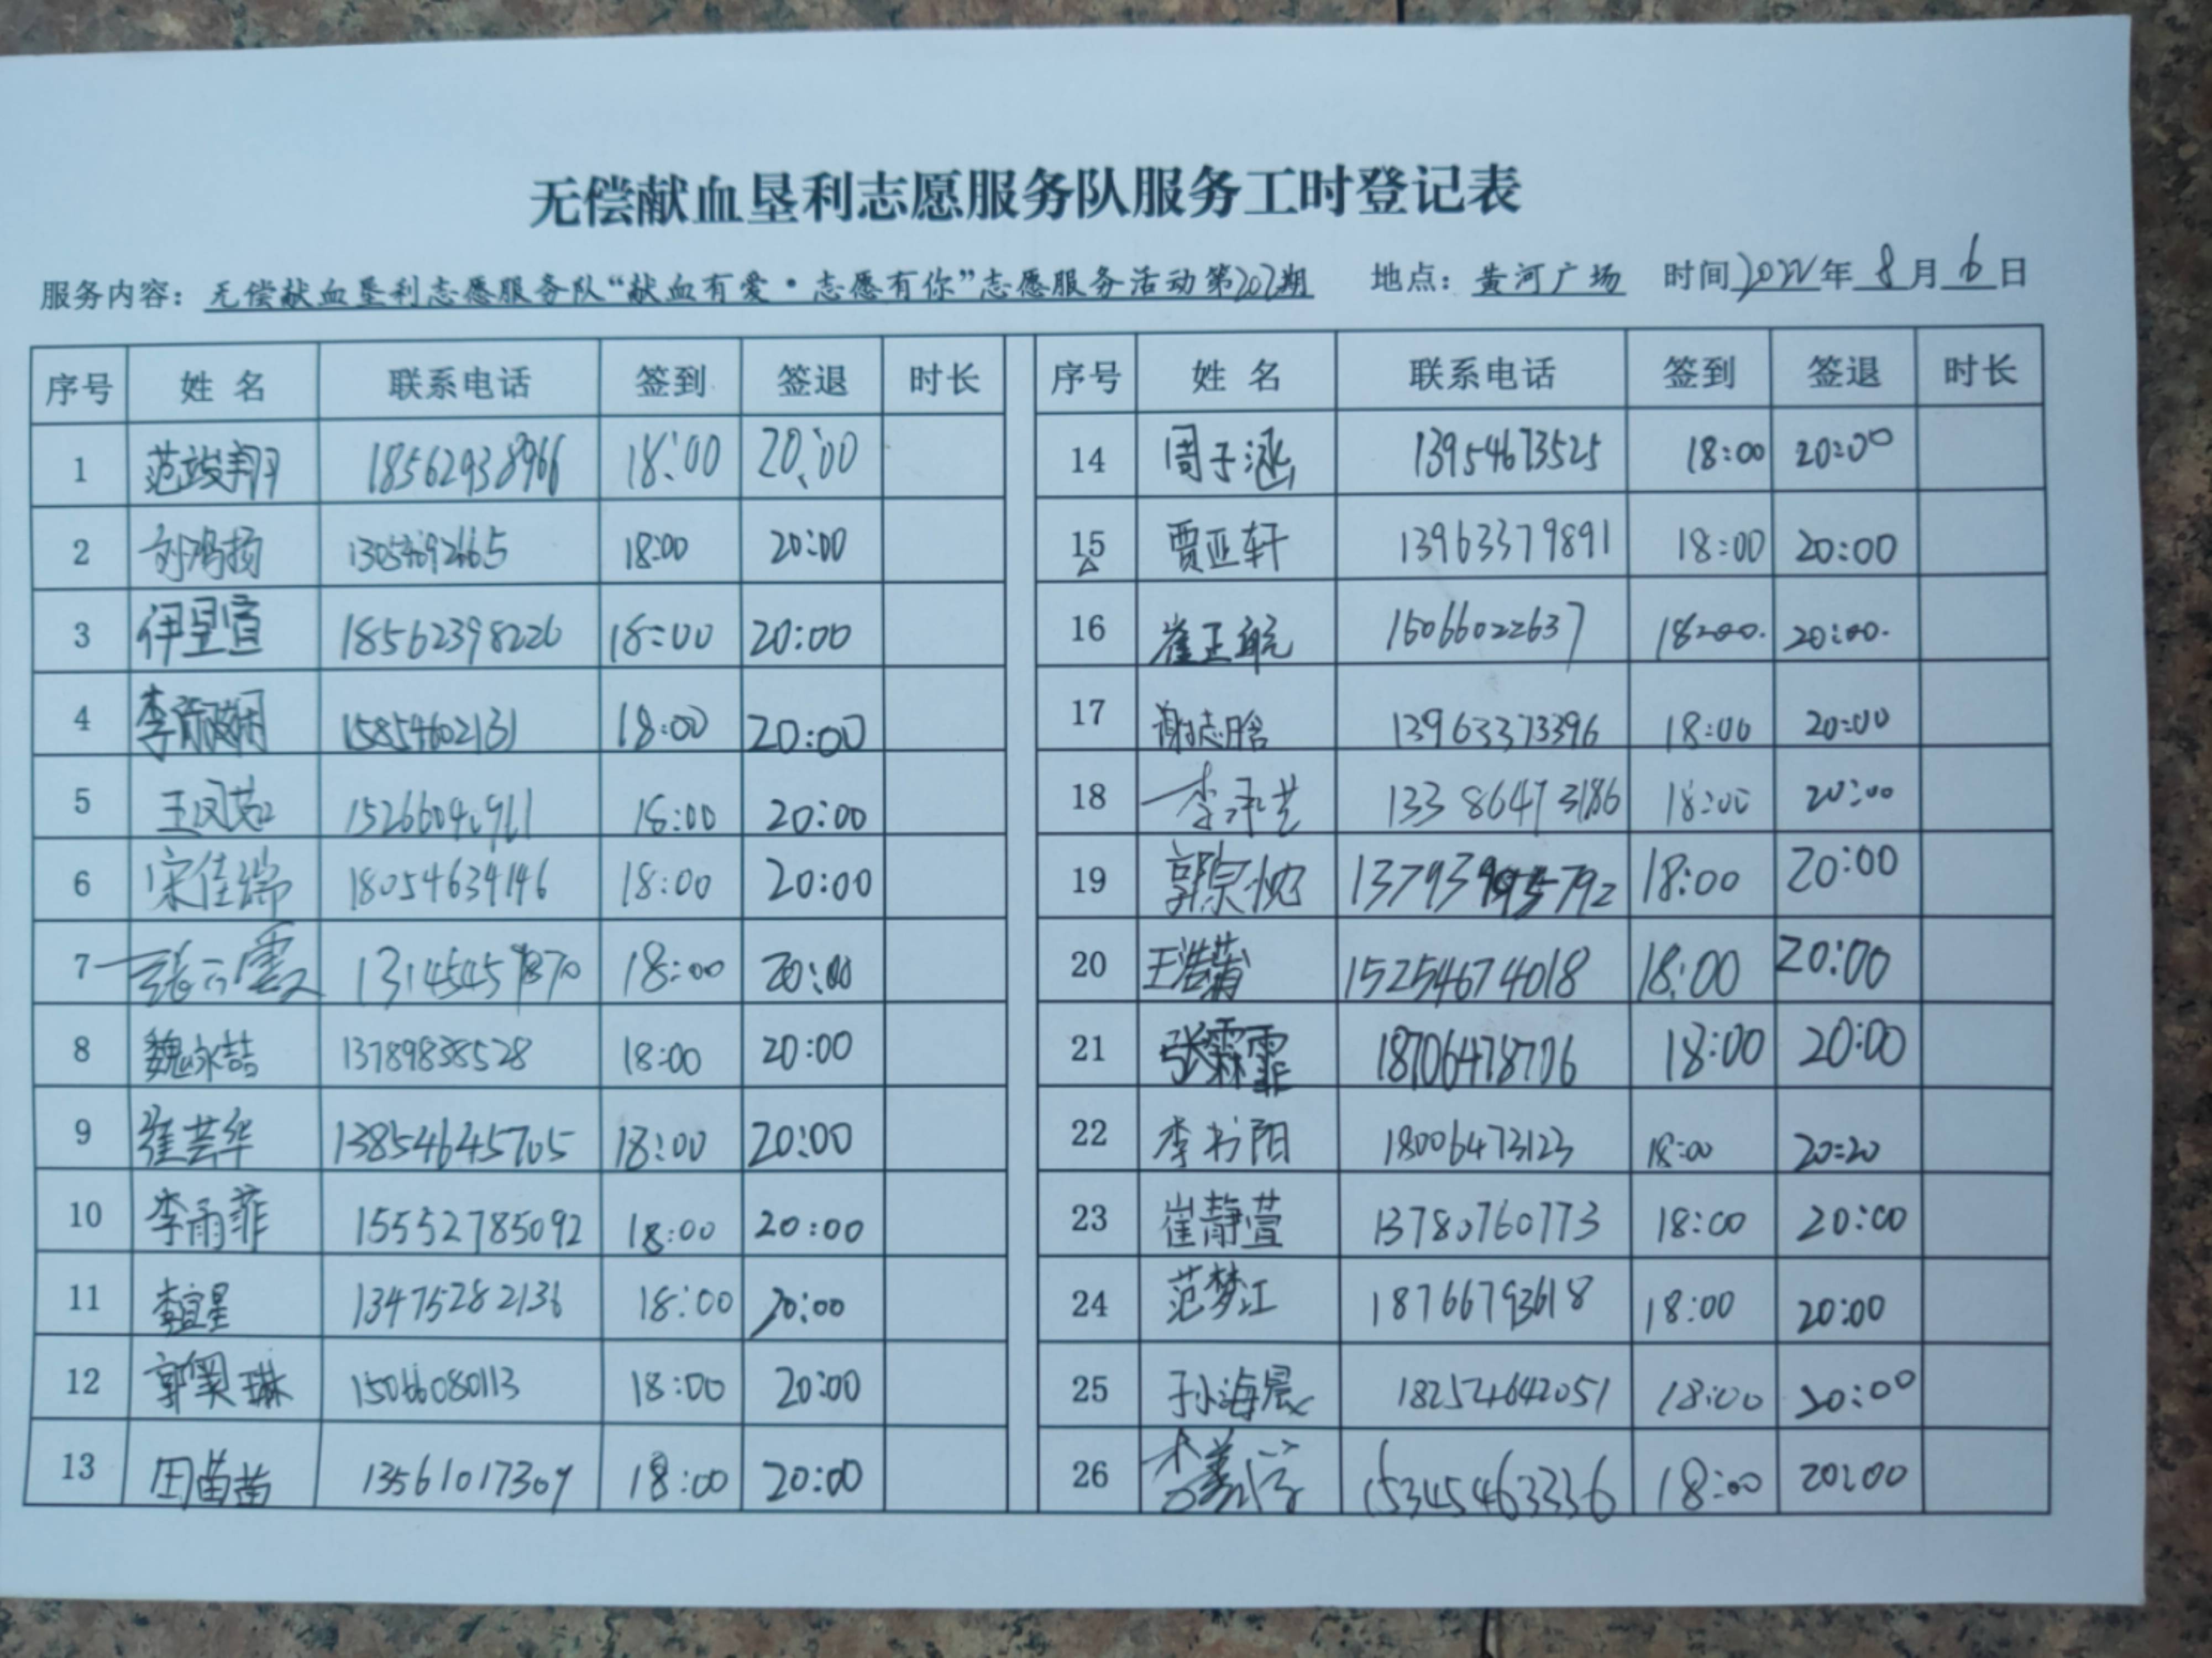 无偿献血垦利志愿服务队服务工时登记表
服务内容：无偿献血垦利志愿服务队“献血有爱·志愿有你”志愿服务活动第202期 地点：黄河广场 时间2022年8月6日
序号 姓名 联系电话 签到 签退 时长 序号 姓名 联系电话 签到 签退 时长
1 范竣翔 18562938966 18:00 20:00 14 周子涵 13954673525 18:00 20:00
2 刘鸿扬 18:00 20:00 15 贾亚轩 13963379891 18:00 20:00
3 伊呈宣 18562398226 18:00 20:00 16 崔正航 15066022637 18:00 20:00
4 李 15854602131 18:00 20:00 17 谢志晗 13963373396 18:00 20:00
5 王凤茹 18:00 20:00 18 李承艺 13386473186 18:00 20:00
6 宋佳瑞 18054634146 18:00 20:00 19 郭宗悦 18:00 20:00
7 张云霞 18:00 20:00 20 王浩菊 15254674018 18:00 20:00
8 魏永喆 13789838528 18:00 20:00 21 张霖霏 18706478706 18:00 20:00
9 崔芸华 13854645705 18:00 20:00 22 李书阳 18006473123 18:00 20:20
10 李雨菲 15552785092 18:00 20:00 23 崔静萱 13780760773 18:00 20:00
11 李宜星 13475282136 18:00 20:00 24 范梦江 18766793618 18:00 20:00
12 郭奕琳 15066080113 18:00 20:00 25 孙海晨 18254642051 18:00 20:00
13 田苗苗 13561017309 18:00 20:00 26 李 15345463336 18:00 20:00